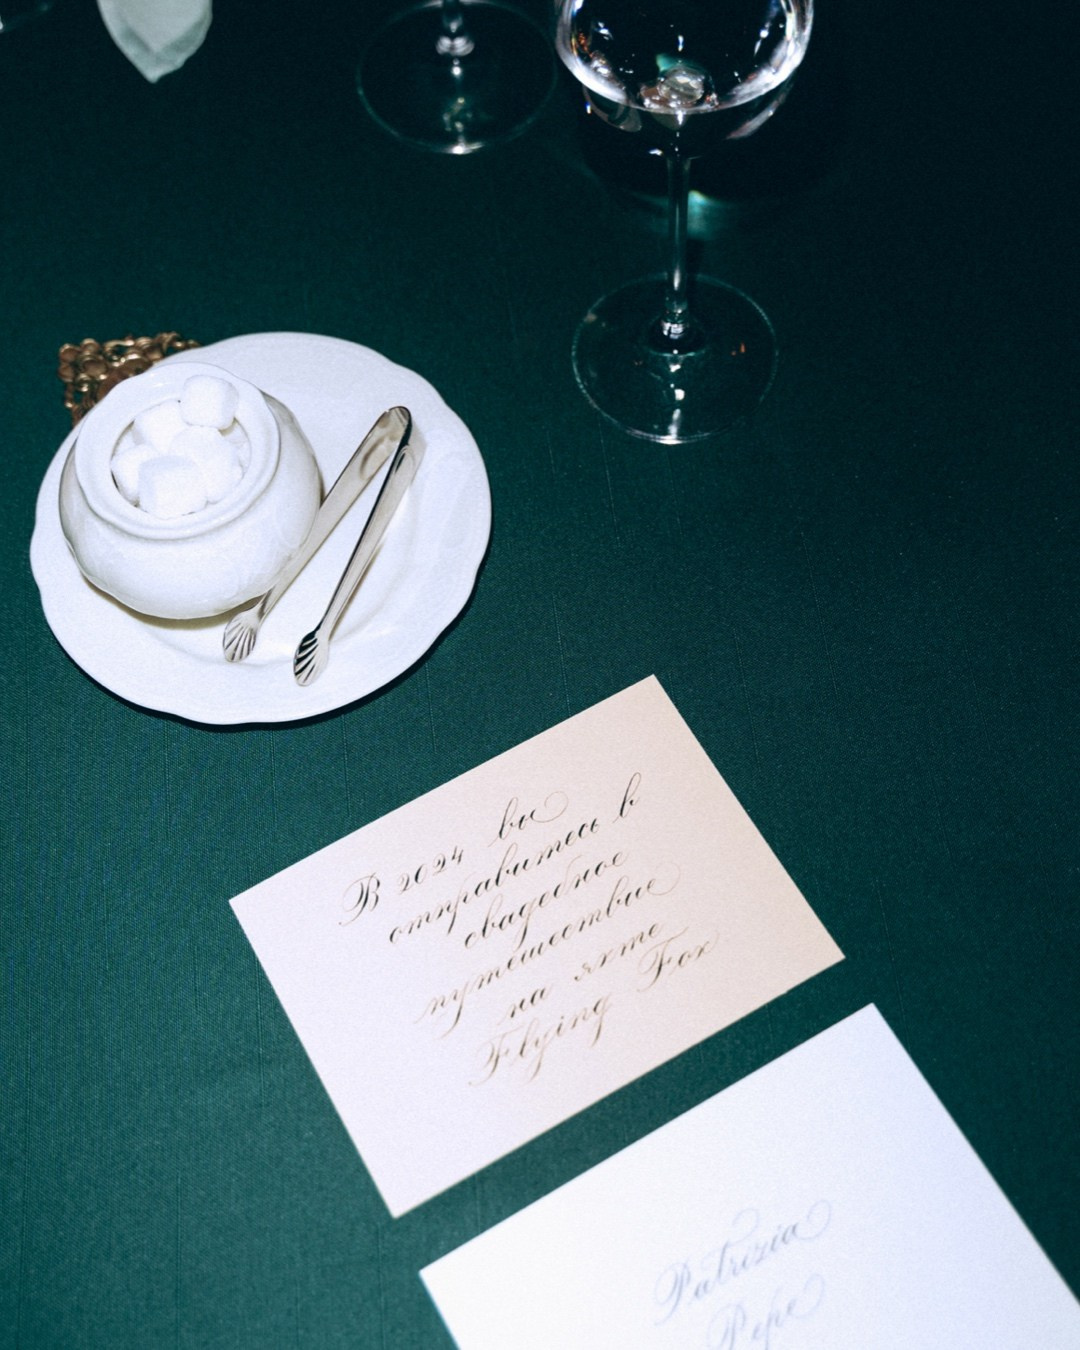 В 2024 вы
отправитесь в
свадебное
путешествие
на яхте
Flying Fox
Patrizia
Pepe